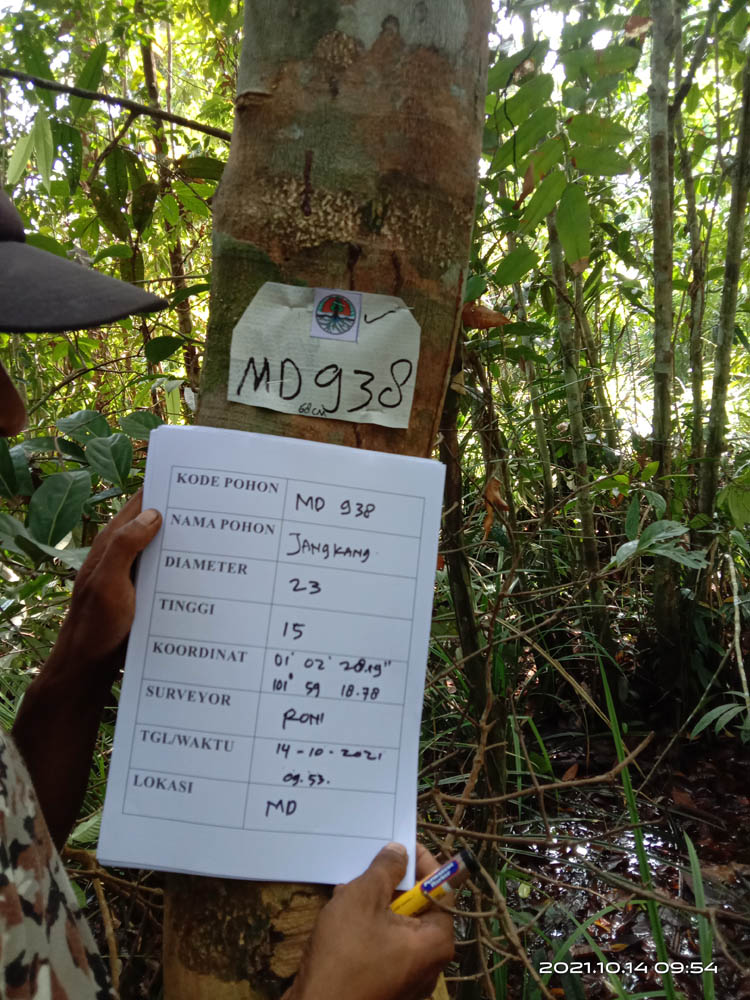 MD 938
68 cm
KODE POHON MD 938
NAMA POHON JANGKANG
DIAMETER 23
TINGGI 15
KOORDINAT 01° 02' 28.19"
101° 59 18.78
SURVEYOR RONI
TGL/WAKTU 14-10-2021
09.53.
LOKASI MD
2021.10.14 09:54